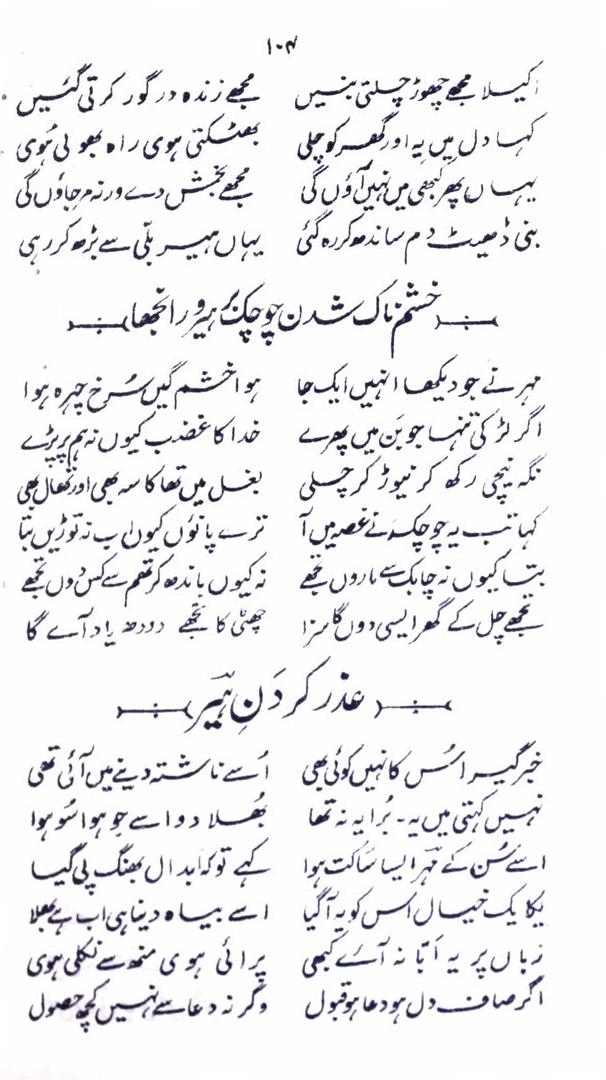 ۱۰۴
اکیلا مجھے چھوڑ چلتی بنیں مجھے زندہ در گور کرتی گئیں
کہا دل میں یہ اور گھر کو چلی بھٹکتی ہوی راہ بھولی ہوی
یہاں پھر کبھی میں نہیں آؤں گی مجھے بخش دے ورنہ مر جاؤں گی
بنی ڈھیٹ دم ساندھ کر رہ گئی یہاں ہیر بلّی سے بڑھ کر رہی
خشم ناک شدن چوچک بر ہیر و رانجھا
مہر نے جو دیکھا انہیں ایک جا ہوا خشم گیں سُرخ چہرہ ہوا
اگر لڑکی تنہا جو بَن میں پھرے خدا کا غضب کیوں نہ ہم پر پڑے
نگہ نیچی رکھ کر نیوڑ کر چلی بغل میں تھا کاسہ بھی اور تھال بھی
کہا تب یہ چوچک نے غصہ میں آ ترے پانوں کیوں اب نہ توڑیں بتا
بتا کیوں نہ چابک سے ماروں تجھے نہ کیوں باندھ کر تھم سے کس دوں تجھے
تجھے چل کے گھر ایسی دوں گا سزا چھٹی کا تجھے دودھ یاد آے گا
عذر کردَنِ ہیر
خبر گیر اسُ کا نہیں کوئی بھی اُسے ناشتہ دینے میں آئی تھی
نہیں کہتی میں یہ ۔ بُرا یہ نہ تھا بھُلا دو اسے جو ہوا سُو ہوا
اسے سُن کے مَہر ایسا ساکت ہوا کہے تو کہ ابدال بھنگ پی گیا
یکایک خیال اس کو یہ آ گیا اسے بیاہ دینا ہی اب ہے بھلا
زباں پر یہ اَبّا نہ آۓ کبھی پرائی ہوی منھ سے نکلی ہوی
اگر صاف دل ہو دعا ہو قبول وگر نہ دعا سے نہیں کچھ حصول